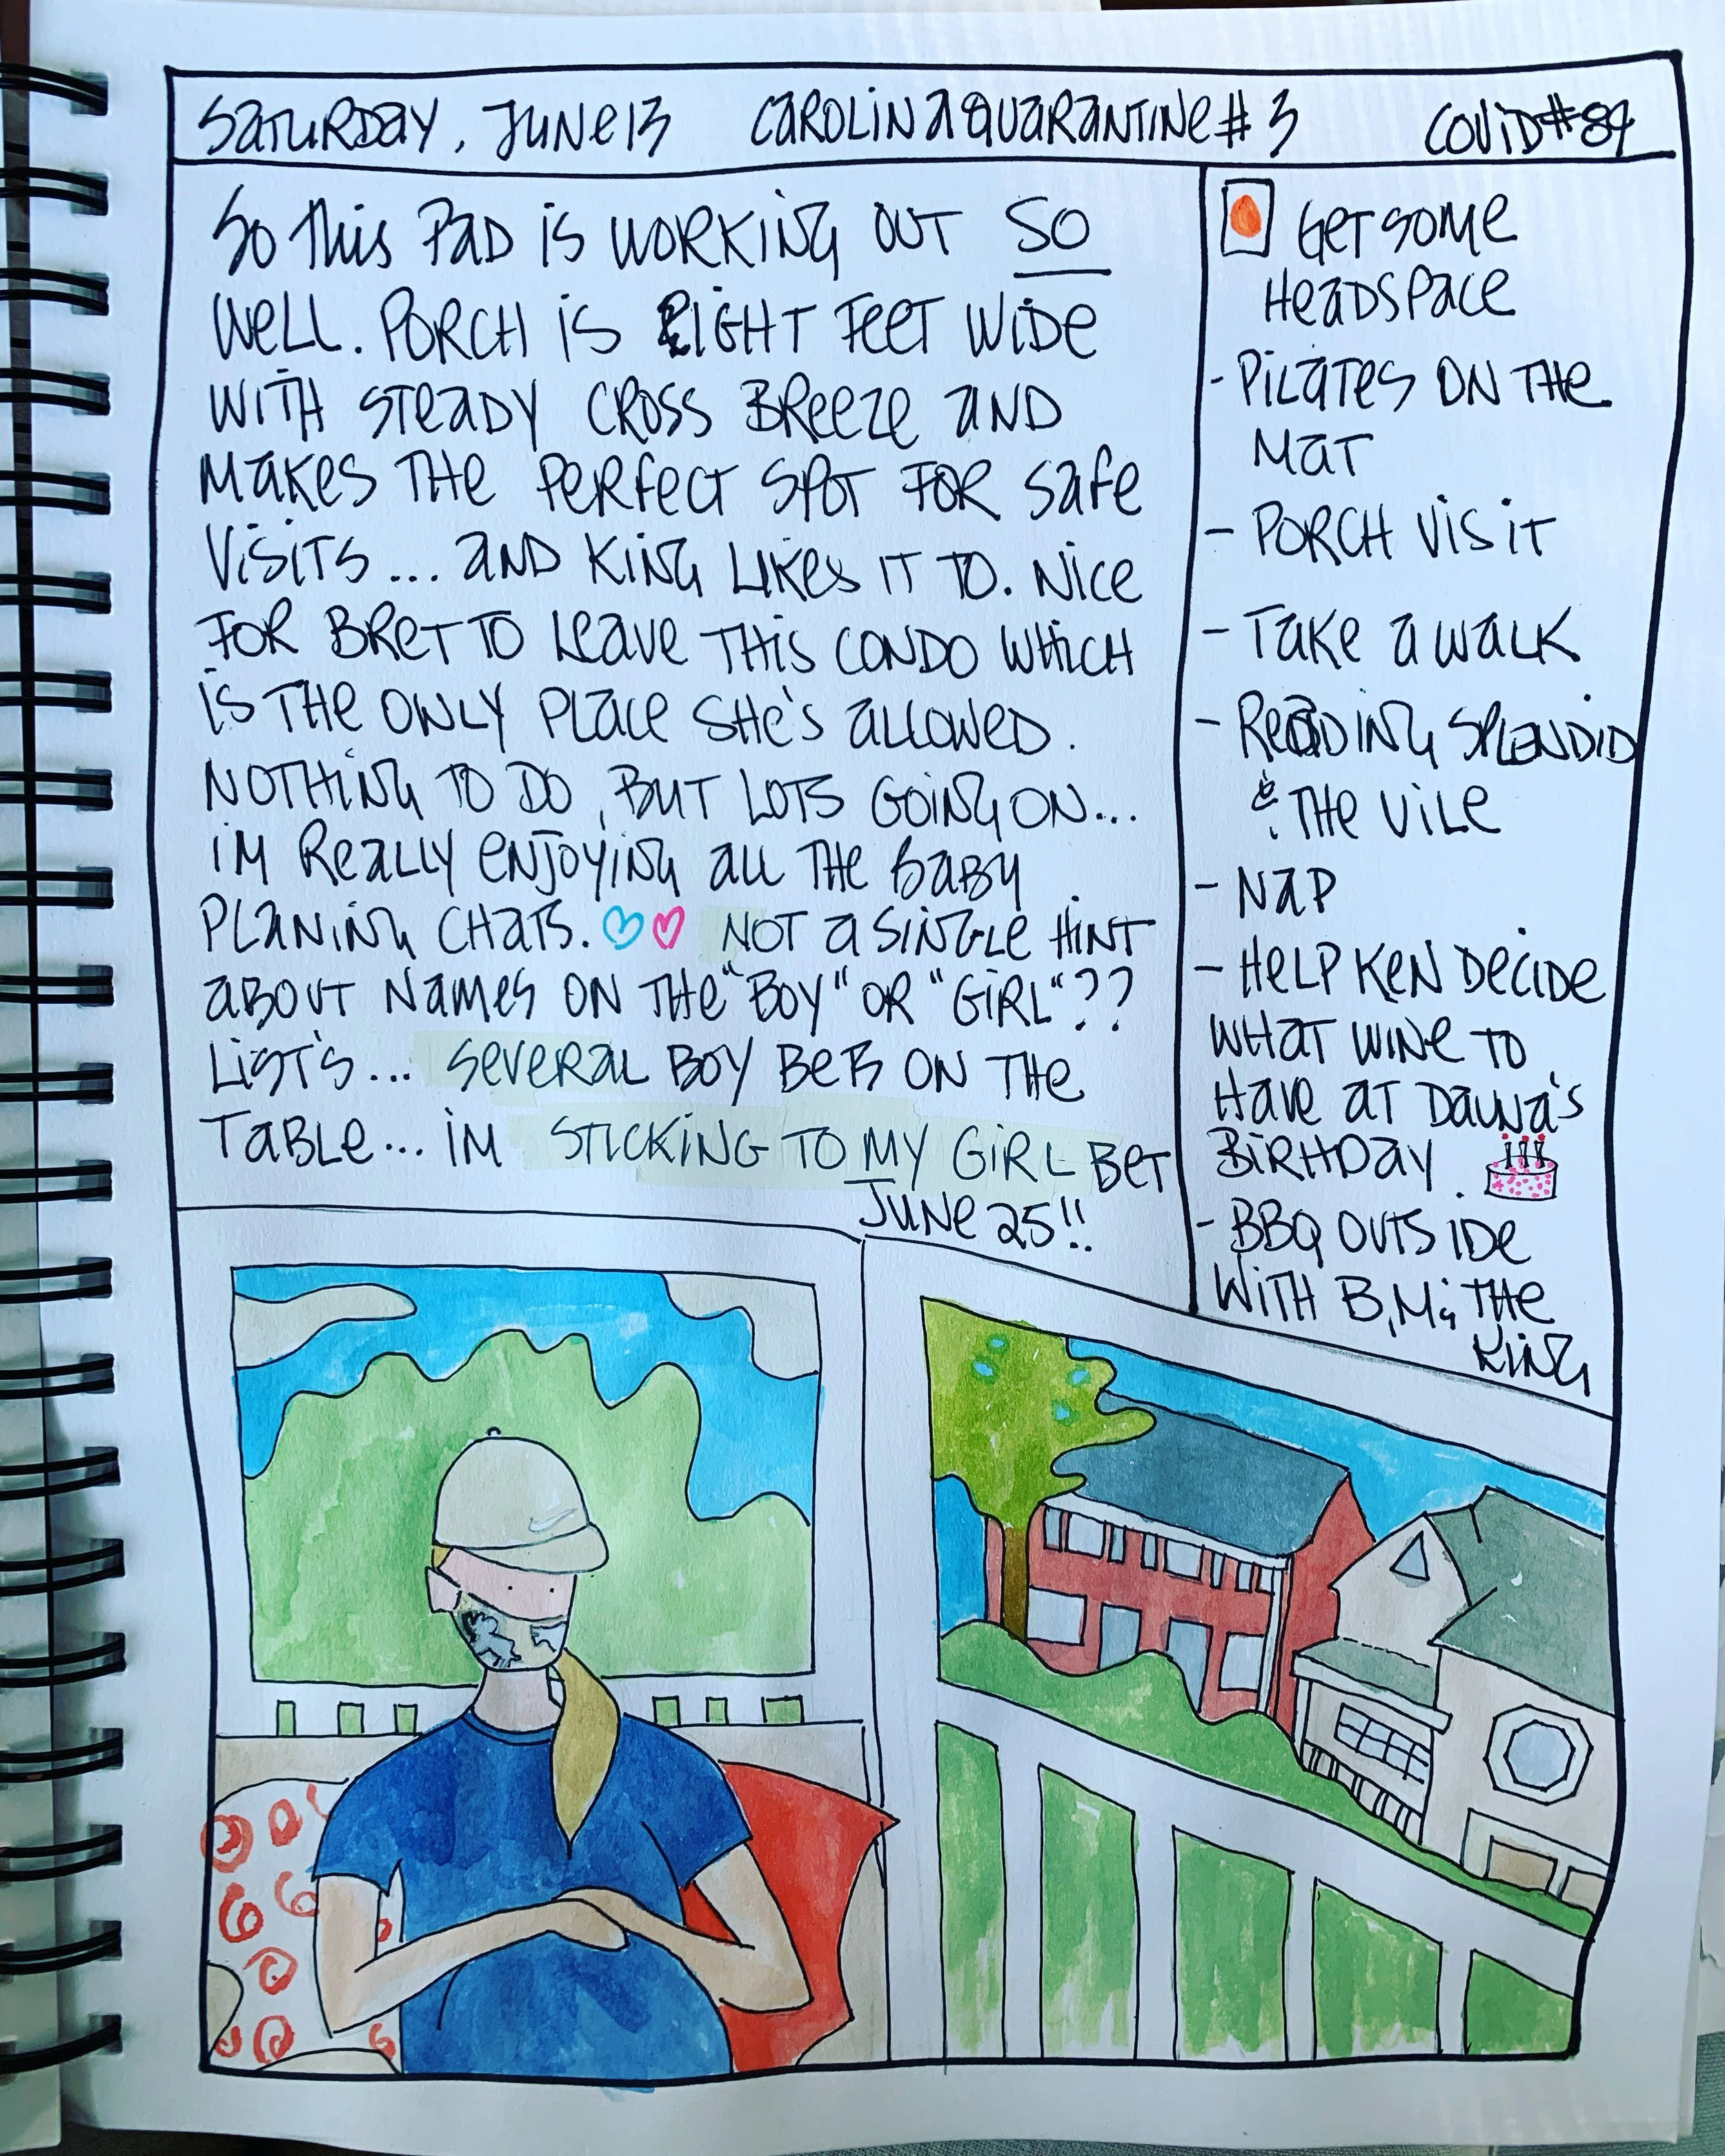 SATURDAY, JUNE 13 CAROLINA QUARANTINE # 3 COVID #89
SO THIS PAD IS WORKING OUT SO
WELL. PORCH IS EIGHT FEET WIDE
WITH STEADY CROSS BREEZE AND
MAKES THE PERFECT SPOT FOR SAFE
VISITS... AND KING LIKES IT TO. NICE
FOR BRET TO LEAVE THIS CONDO WHICH
IS THE ONLY PLACE SHE'S ALLOWED.
NOTHING TO DO, BUT LOTS GOING ON...
IM REALLY ENJOYING ALL THE BABY
PLANING CHATS. NOT A SINGLE HINT
ABOUT NAMES ON THE "BOY" OR "GIRL"??
LIST'S... SEVERAL BOY BETS ON THE
TABLE... IM STICKING TO MY GIRL BET
JUNE 25!!
GET SOME
HEADSPACE
- PILATES ON THE
MAT
- PORCH VISIT
- TAKE A WALK
- READING SPLENDID
& THE VILE
- NAP
- HELP KEN DECIDE
WHAT WINE TO
HAVE AT DAUNA'S
BIRHDAY.
- BBQ OUTSIDE
WITH B, M & THE
KING